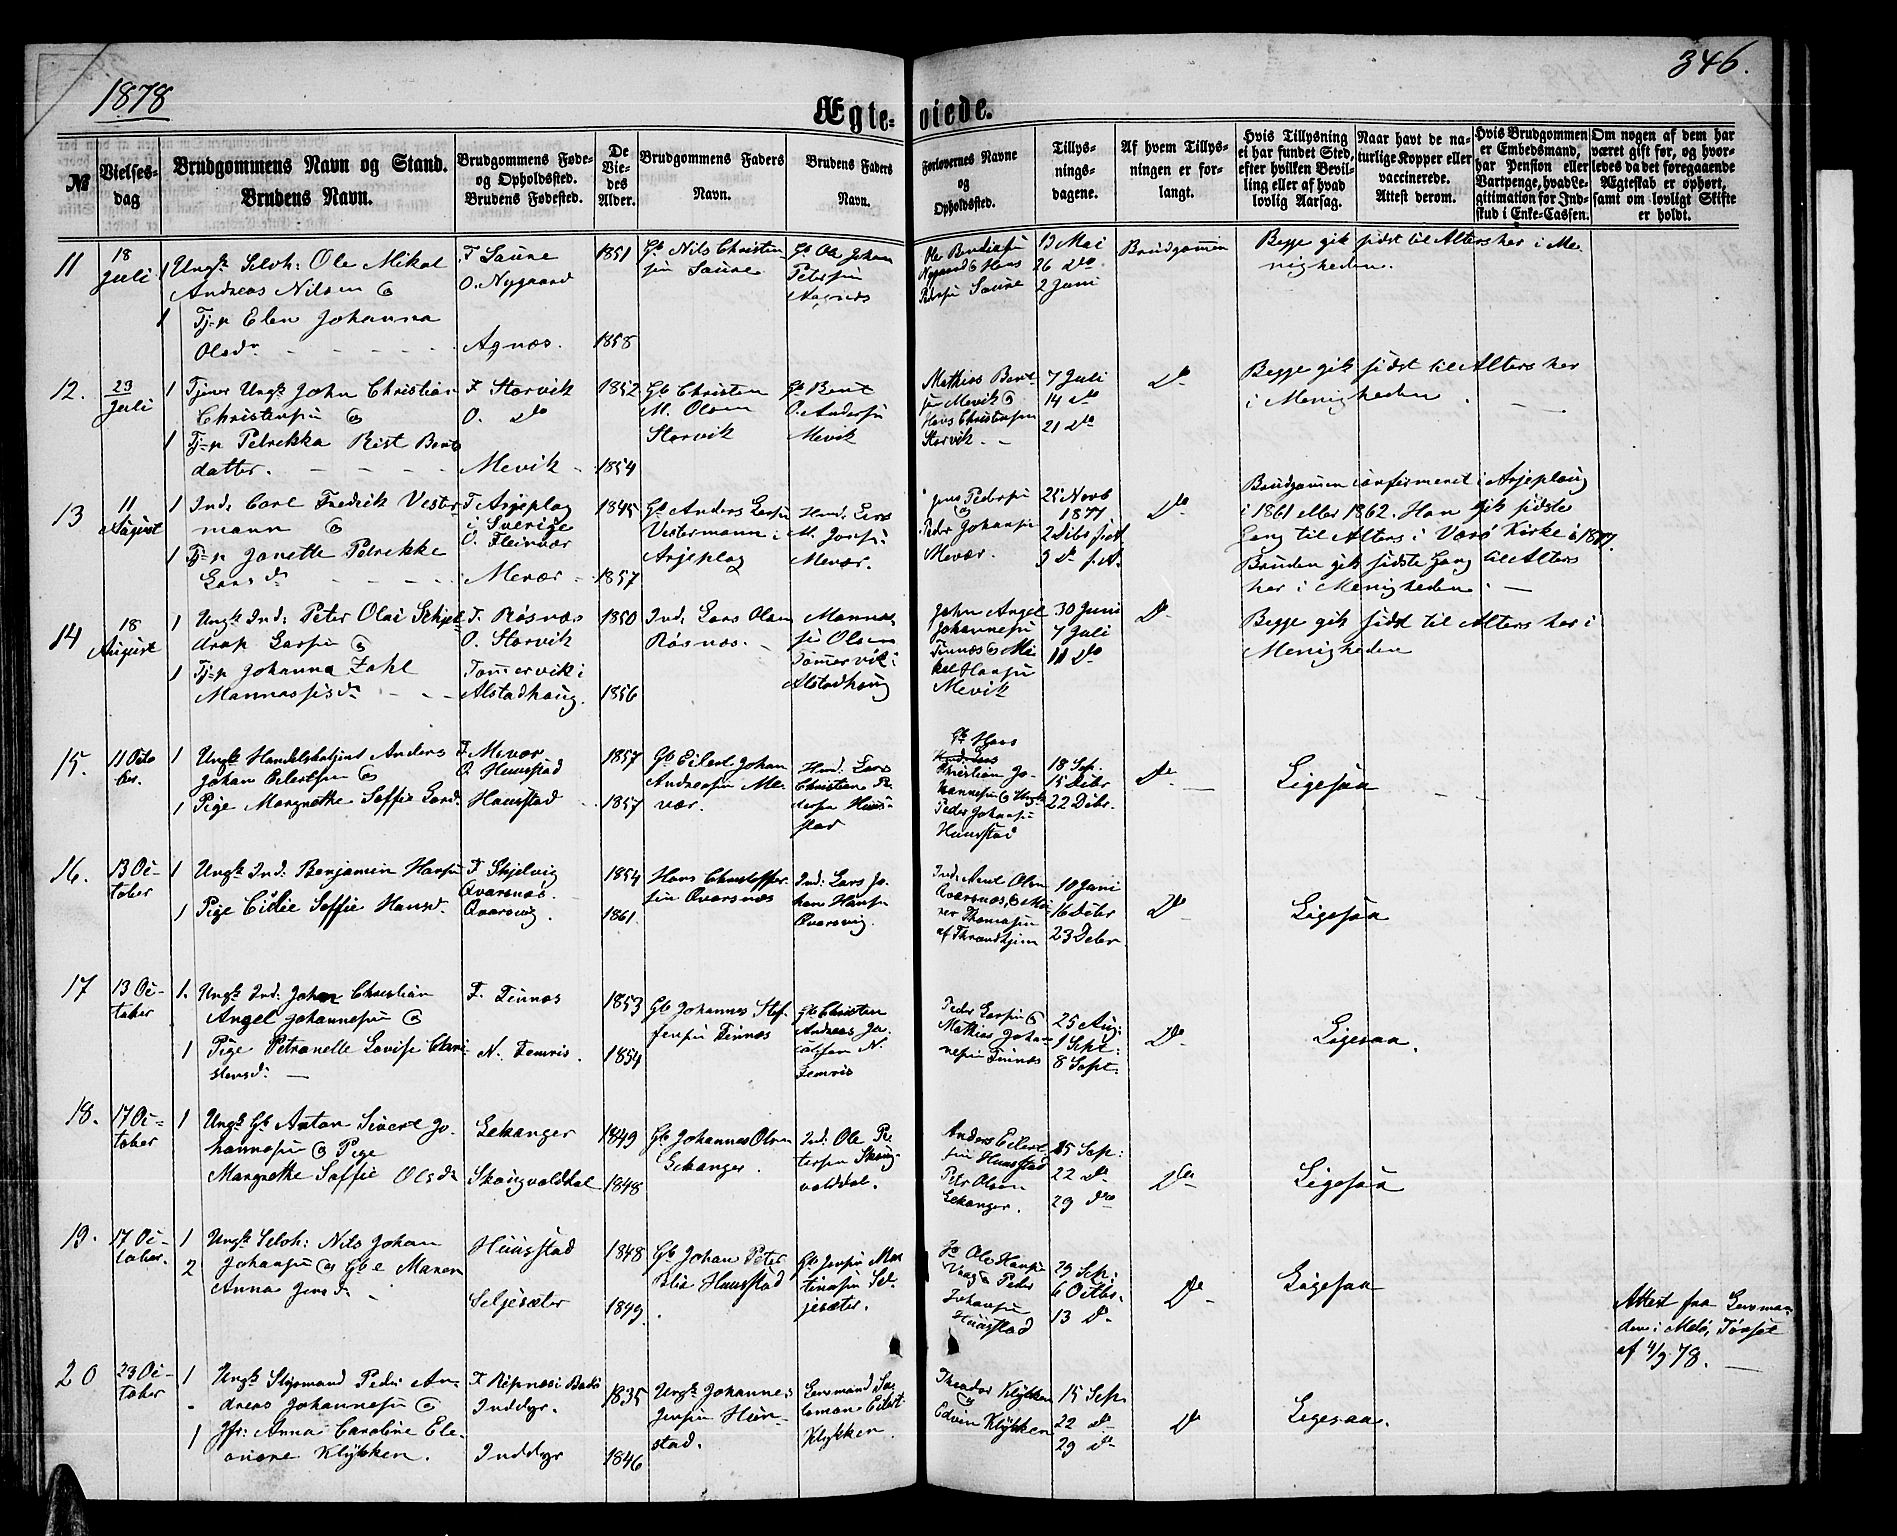 1878
346.
Ægte-viede.
№
Vielses-
dag
Brudgommens Navn og Stand.
Brudens Navn.
Brudgommens Føde-
og Opholdssted.
Brudens Fødested.
De
Vie-
des
Alder.
Brudgommens Faders
Navn.
Brudens Faders
Navn.
Forlovernes Navne
og
Opholdssted.
Tillys-
nings-
dagene.
Af hvem Tillys-
ningen er for-
langt.
Hvis Tillysning
ei har fundet Sted,
efter hvilken Bevil-
ling eller af hvad
lovlig Aarsag.
Naar havt de na-
turlige Kopper eller
vaccinerede.
Attest derom.
Hvis Brudgommen
er Embedsmand,
har Pension eller
Vartpenge, hvad Le-
gitimation for Ind-
skud i Enke-Cassen.
Om nogen af dem har
været gift før, og hvor-
ledes da det foregaaende
Ægteskab er ophørt,
samt om lovligt Skifte
er holdt.
11
18
Juli
1 Ungk. Selvh: Ole Mikal
Andreas Nilsen &
1 Tj-p Elen Johanna
Olsdr
F. Saure
O. Nygaard
Agnæs.
1851
1858
Gb Nils Christen
sen Saure
Gb Ole Johan
Petersen
Agnæs
Ole Bentsen
Nygaard & Hans
Pedersen Saure
19 Mai
26 Do
2 Juni
Brudgommen
Begge gik sidst til Alters her i Me-
nigheden.
12.
23
Juli
1 Tjener Ungk John Christian
Christensen &
1 Tj-p Petrikka Kist Bents
datter.
F. Storvik
O. Do
Mevik
1852
1854
Gb Christen
M. Olsen
Storvik
Gb Bent
O. Andersen
Mevik
Mathias Bent-
sen Mevik &
Hans Christensen
Storvik.
7 Juli
14 do
21 do
Do
Begge gik sidst til Alters her
i Menigheden.
13
11
August
1 Ind. Carl Fredrik Vester-
mann &
1 Tj-p Janette Petrikke
Larsdr
F. Arjeplog
i Sverige
O. Fleinvær
Mevær
1845
1857
Gb Anders Larsen
Vestermann i
Arjeplog
Huusm. Lars
M. Jonsen
Mevær.
Jens Pedersen
&
Peder Johansen
Mevær.
25 Novb
1877
2 Dcbr f.A
9 Do f.A.
Do
Brudgommen confirmeret i Arjeploug
i 1861 eller 1862. Han gik sidste
Gang til Alters i Værø Kirke i 1877.
Bruden gik sidste Gang til Alters
her i Menigheden.
14
18
August
1 Ungk Ind: Peter Olai Schjel-
drop Larsen &
1 Tj-p Johanna Zahl
Mannassesdr
F. Røsnæs
O. Storvik
Tømmervik i
Alstadhaug.
1850
1856
Ind: Lars Olsen
Røsnæs.
Mannas-
sen Olsen
Tømmervik i
Alstadhaug
John Angel
Johannesen
Finnæs & Mi-
kel Hansen
Mevik
30 Juni
7 Juli
11 Do
Do
Begge gik sidst til Alters her i
Menigheden
15.
11 Octo
ber.
1 Ungk Handelsbetjent Anders
Johan Eilertsen &
1 Pige Margrethe Soffie Larsd.
F. Mevær
O. Huusstad
Huusstad
1857
1857
Gb Eilert Johan
Andreasen Me-
vær.
Huusm. Lars
Christian Pe-
dersen Huus-
stad
Gb Hans
Christian Jo-
hannesen & Ungk
Peder Johansen
Huusstad
18 Sep.
15 Dcbr
22 Dcbr.
Do
Ligesaa
16.
13 Oc-
tober
1 Ungk Ind: Benjamin Hansen
1 Pige Cidie Soffie Hansd.
F. Skjelvig
Qvarsnæs.
Qvarsvig.
1854
1861.
Hans Christoffer-
sen Qvarsnæs
Ind: Lars Jo-
han Hansen
Qvarsvig.
Ind: Arnt Olsen
Qvarsnæs, & Mei-
ner Thomasen
af Throndhjem
10 Juni
16 Dcbr
23 Dcbr
Do
Ligesaa
17
13 Oc-
tober
1. Ungk Ind: Johan Christian
Angel Johannesen &
1 Pige Petronelle Lovise Chri-
stensdr
F. Finnæs
N. Femris.
1853
1854
Gb Johannes Stef-
fensen Finnæs
Gb Christen
Andreas Ja-
cobsen N.
Femris
Peder Larsen &
Mathias Johan-
nesen Finnæs
25 Aug:
1 Sept:
8 Sept.
Do
Ligesaa.
18.
17 Oc-
tober
1 Ungk Gb Anton Sivert Jo-
hannesen & Pige
Margrethe Soffie Olsdr
Lekanger
Skaugvoldal
1849
1848
Gb Johannes Olsen
Lekanger.
Ind. Ole Pe-
tersen Skaug-
voldal.
Anders Eilert-
sen Huusstad
Petr Olsen
Lekanger.
15 Sep:
22 do
29 do
Do
Ligesaa
19.
17 Oc-
tober.
1 Ungk Selvh: Nils Johan
2 Johansen & Gbe Maren
Anna Jensdr
Huusstad
Seljesæter
1848
1849.
Gb Johan Peter
Elie Huusstad
Gb Jensen Mar-
tinusen Sel-
jesæter.
Ole Hansen
Vaag & Peder
Johansen
Huusstad
29 Sep:
6 Octbr.
13 Do
Do
Ligesaa
Attest fra Lensman-
den i Melø, Torset
af 4/9 78.
20
23 Oc-
tober
1 Ungk Styrmand Peder An-
dreas Johannesen &
1 Jfr: Anna Caroline Ele-
onore Klykken.
F. Ripnæs i Bodø
Inddyr.
Inddyr
1835
1846
Ungk Johannes
Jensen Hun-
stad.
Lensmand Sa-
lomon Eilert
Klykken.
Theodor Klykken
&
Edvin Klykken
15 Sep.
22 do
29 do
Do
Ligesaa.